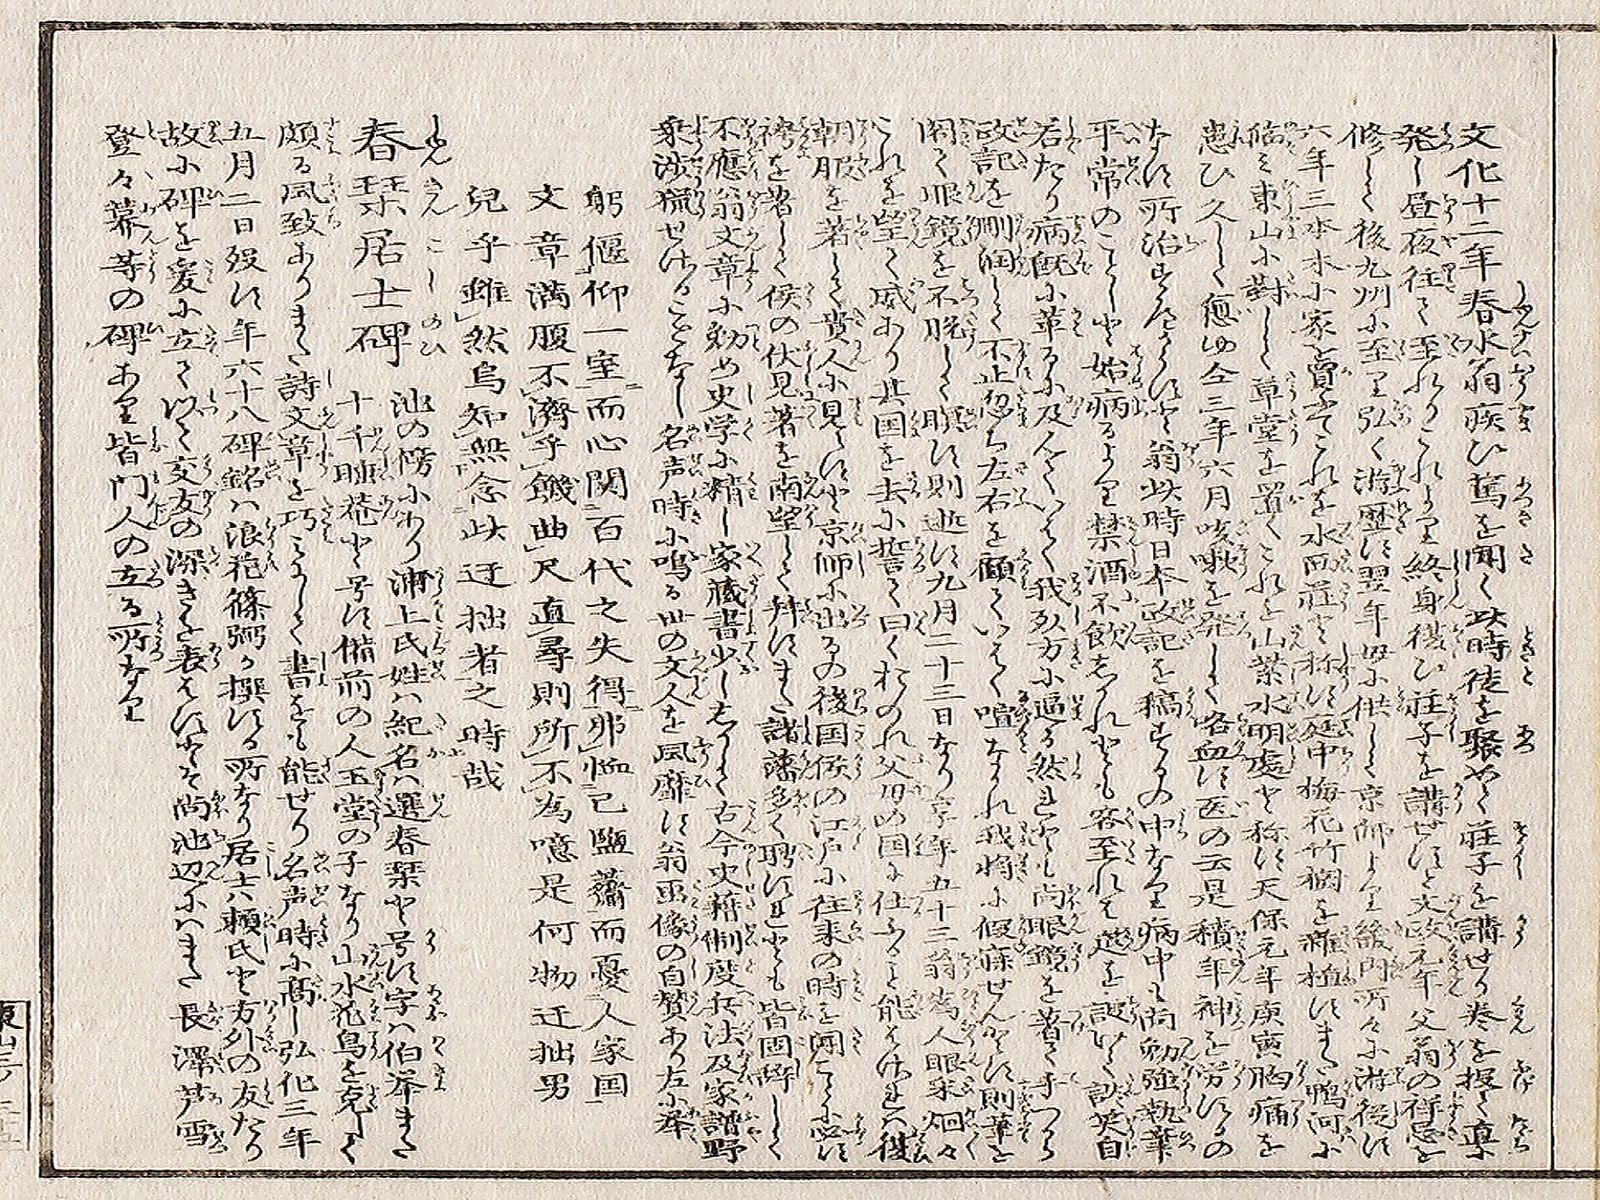 文化十二年春水翁疾ひ篤を聞く此時徒を聚めて荘子を講せり巻を投て直に
発し昼夜往て至れりこれより終身復ひ荘子を講せず文政元年父翁の祥忌を
修して後九州に至り弘く游歴す翌年母に供して京師より後門所々に游従す
六年三本木に家を買てこれを水西荘と称す庭中梅花竹桐を雑植すまた鴨河に
臨み東山に対して草堂を置くこれを山紫水明處と称す天保元年庚寅胸痛を
患ひ久して愈ゆ仝三年六月咳嗽を発して咯血す医の云是積年神を労するの
なす所治すへからすと翁此時日本政記を稿するの中なり病中も尚勉強執筆
平常のことしと始病るより禁酒不飲しかれとも客至れは筵を設けて談笑自
若たり病既に革るに及んていはく我死方に逼る然れとも尚眼鏡を著て手つから
政記を刪潤して不止忽ち左右を顧ていはく喧なかれ我将に仮寐せんとすと則筆を
閣く眼鏡を不脱して瞑す則逝す九月二十三日なり享年五十三翁為人眼采烱々
これを望て威あり其国を去に誓て曰くおのれ父母の国に仕ふること能はすは復
朝服を著して貴人に見えすと京師に出るの後国侯の江戸に往来の時を聞ことに必す
袴を著して侯の伏見著を南望して拝すまた諸藩多く聘すれとも皆固辞して
不應翁文章に勉め史学に精し家蔵書少しもなく古今史籍制度兵法及家譜野
乗渉猟せさることなし名声時に鳴る世の文人を風靡す翁画像の自賛あり左に挙
躬偃仰一室而心関百代之失得那恤己鹽虀而憂人家国
文章満腹不済乎饑曲尺直尋則所不為噫是何物迂拙男
兒乎雖然烏知無念此迂拙者之時哉
春栞居士碑 池の傍にあり浦上氏姓ハ紀名ハ選春栞と号す字ハ伯挙また
十千睡菴と号す備前の人玉堂の子なり山水花鳥を克して
頗る風致ありまた詩文章を巧みにして書をも能せり名声時に高し弘化三年
五月二日歿す年六十八碑銘ハ浪花篠弼か撰する所なり居士ハ頼氏と方外の友たり
故に碑を爰に立て以て交友の深きを表はすとそ尚池辺にハまた長澤芦雪
登々菴等の碑あり皆門人の立る所なり